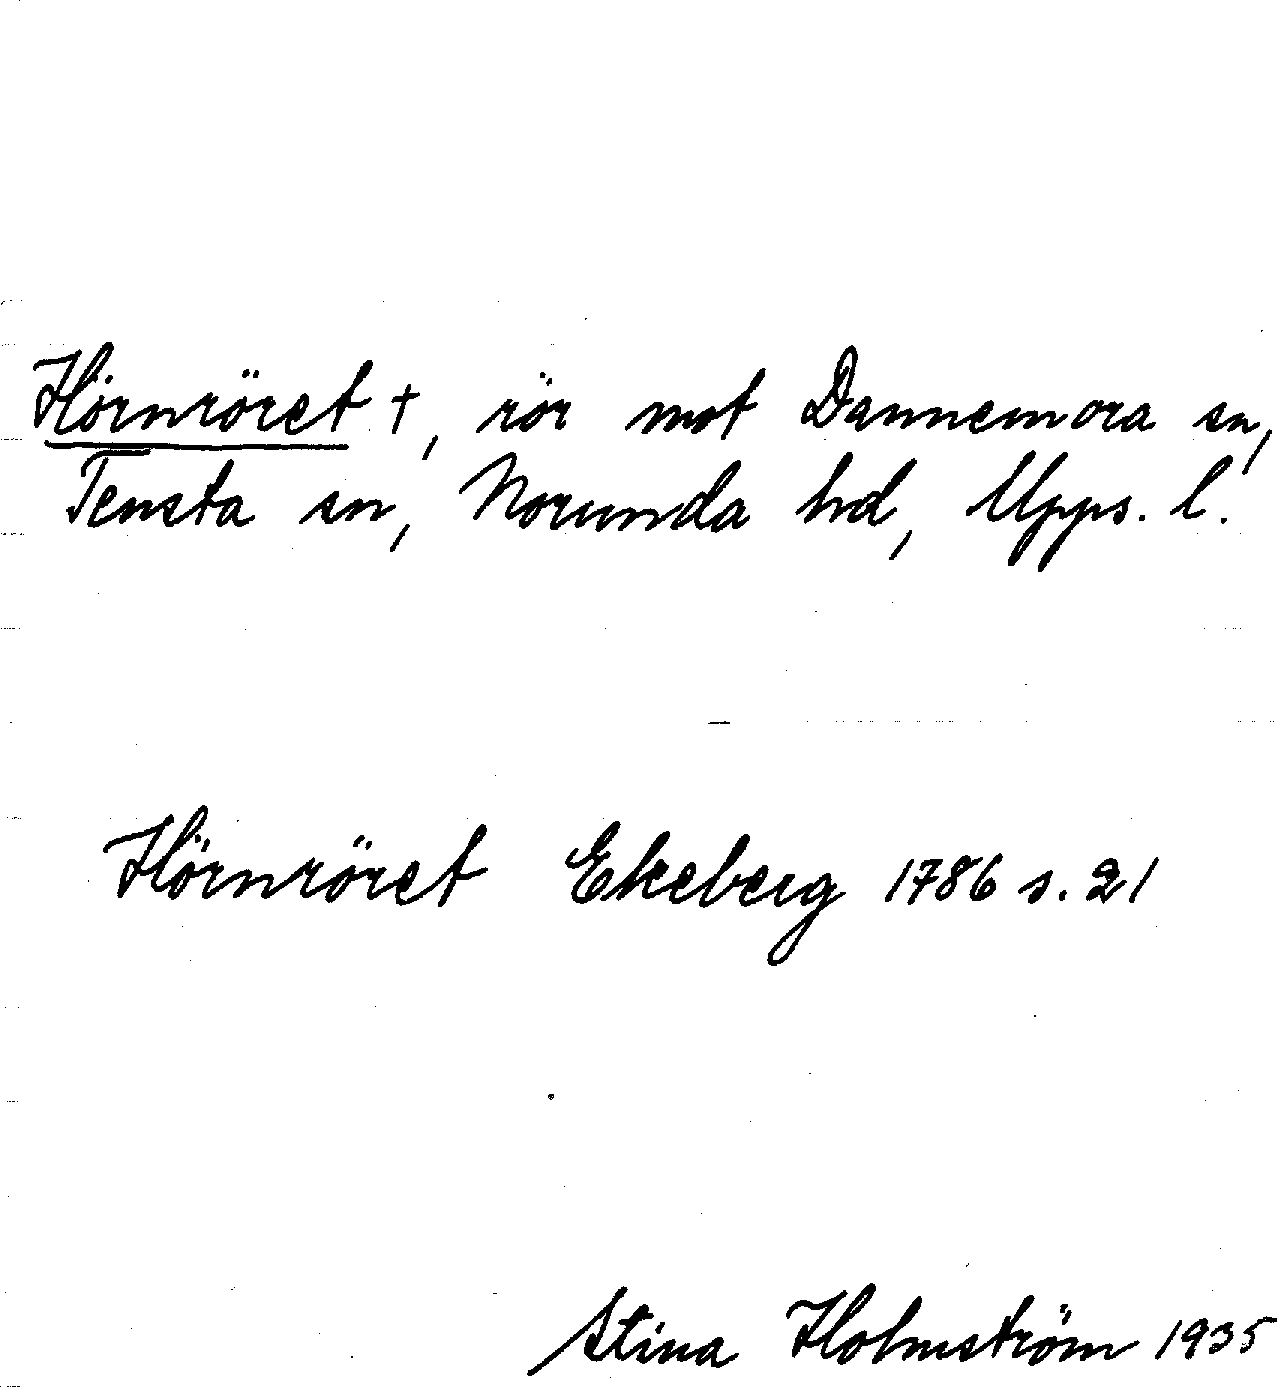 Hörnröret †, rör mot Dannemora sn,
Tensta sn, Norunda hd, Upps. l.
Hörnröret Ekeberg 1786 s. 21
Stina Holmström 1935